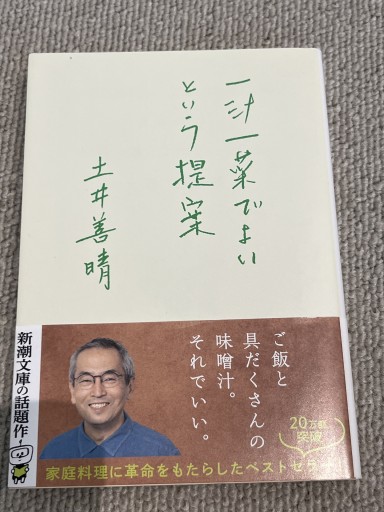 一汁一菜でよい
という提案
土井善晴
ご飯と
具だくさんの
味噌汁。
それでいい。
新潮文庫の話題作
20万部
突破
家庭料理に革命をもたらしたベストセラー